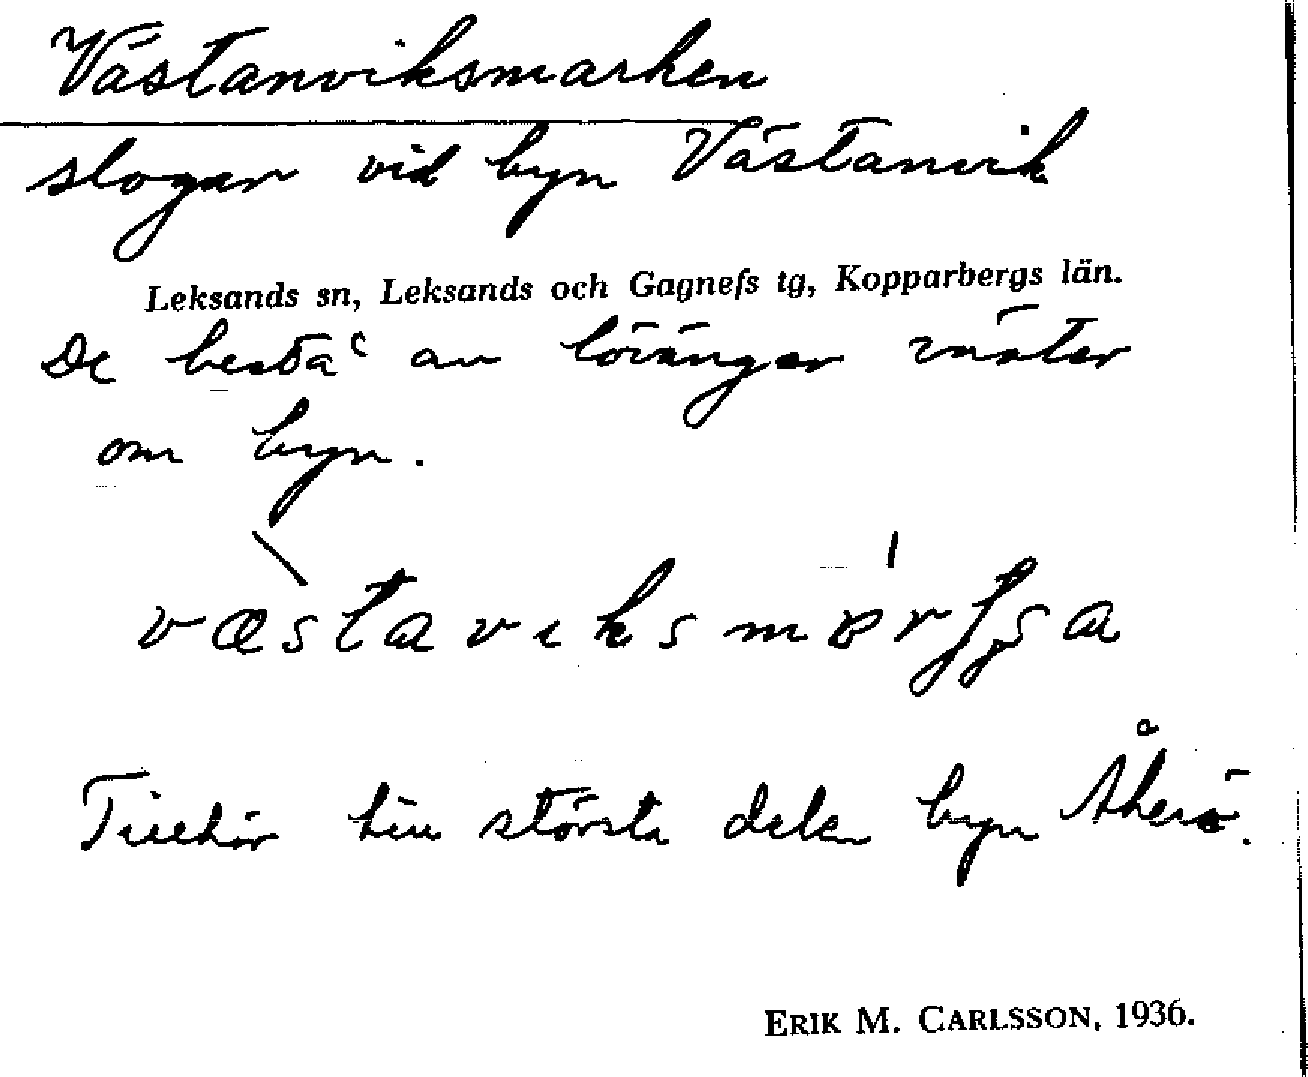 Västanviksmarken
slogar vid byn Västanvik
Leksands sn, Leksands och Gagnefs tg, Kopparbergs län.
De bestå av lövängar väster
om byn.
Tillhör till största delen byn Åkerö.
ERIK M. CARLSSON, 1936.